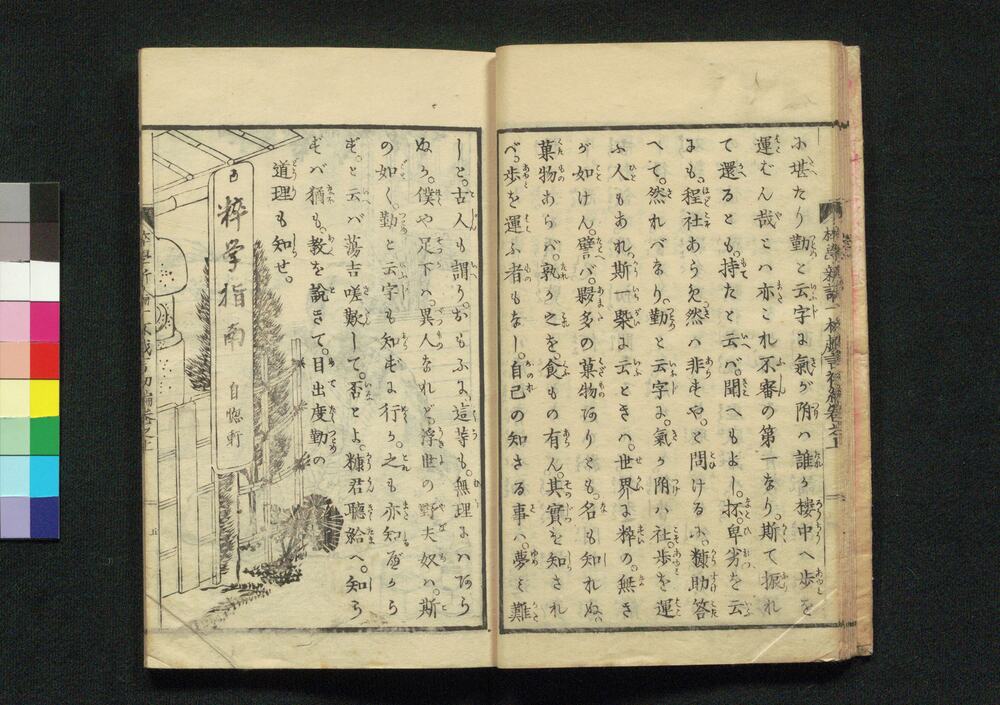 ふ堪たり勤と云字は氣が附ハ誰か楼中へ歩を
運むん哉とハ亦これ不審の第一なり。斯て振れ
て還るとも。持たと云バ。聞へもよし。抔。卑劣を云
よも。程社あらめ。然ハ非ずや。と問けるに。糠助答
へて。然れバなり。勤と云字は。氣が附ハ社。歩を運
ふ人もあれ。斯一槩は云ときハ。世界は粋の。無き
が如けん。譬バ。夥多の菓物ありとも。名も知れぬ。
菓物あらバ。孰か之を。食もの有ん。其實を知され
べ。歩を運ふ者もなし。自己の知さる事ハ。夢々難
しと。古人も謂り。おもふに。這等も。無理にハあら
ぬか。僕や足下ハ。異人なれど。浮世の野夫奴ハ。斯
の如く。勤と云字も知ずは行か。之も亦知區から
ず。と云バ蕩吉嗟歎して。否とよ。糠君聴給へ。知ら
ずバ猶も。教を説きて。目出度勤の
道理も知せ。
粹学指南
自惚軒
五